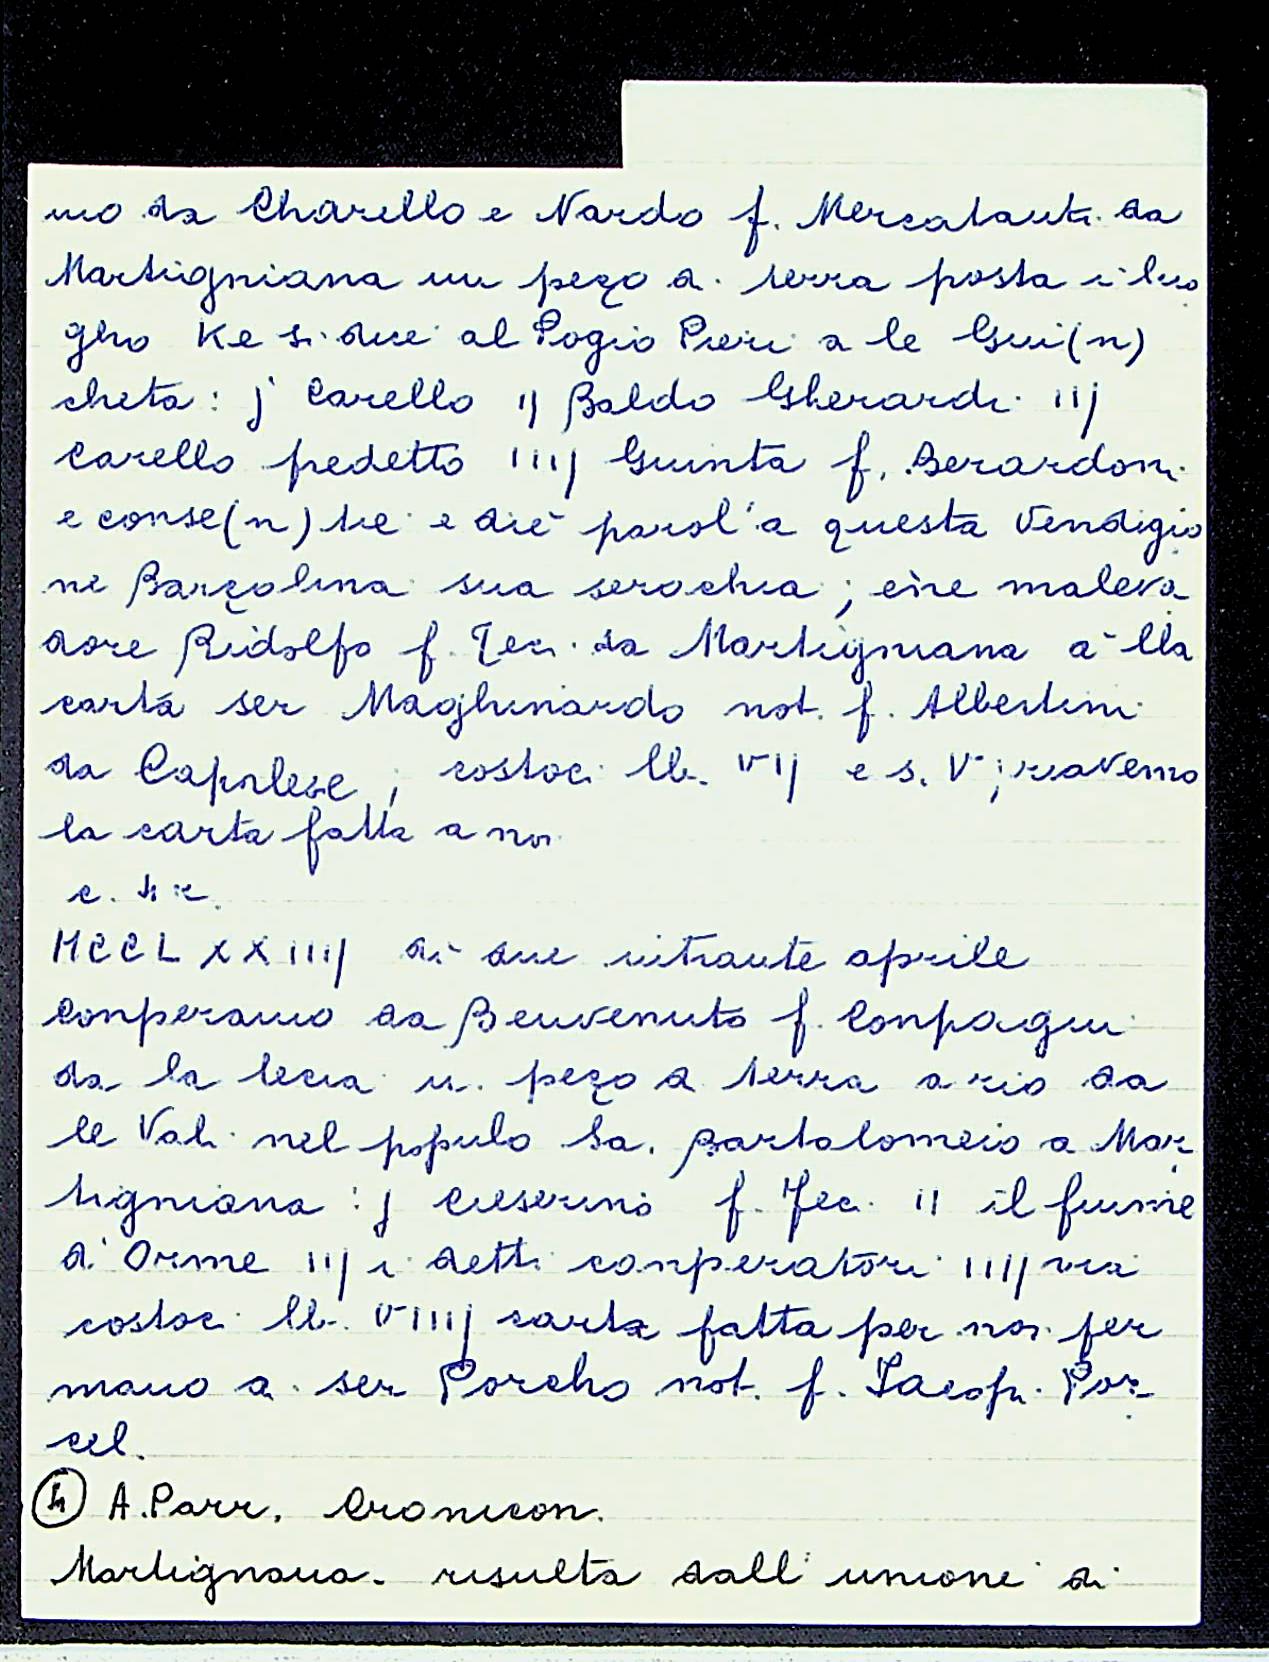 mo da Charello e Nardo f. Mercatanti da
Martigniana un peço di terra posta i· luo
gho Ke si dice al Pogio Pieri a le Gui(n)
cheta: j Carello ij Baldo Gherardi iij
Carello predetto iiij Guinta f. Berardoni
e conse(n)tie e diè parol'a questa vendigio
ne Barçolina sua serochia; ène maleva
dore Ridolfo f. Feci da Martigniana à lla
carta ser Maghinardo not. f. Albertini
da Capalese; costoci lb. VIJ e s. V; riavemo
la carta fatta a noi
c.
MCCLXXIIIJ di due intrante aprile
Conperamo da Benvenuto f. Conpagni
da la Lecia u. peço di terra a rio da
le Vali nel populo Sa. Bartalomeio a Mar
tigniana: j Cieserino f. Feci ij il fiume
d'Orme iij i detti conperatori iiij via
costoci lb. VIIIJ carta fatta per noi per
mano di ser Porcho not. f. Iacopi Por
cel.
④ A. Parr. Cronicon.
Martignana risulta dall'unione di